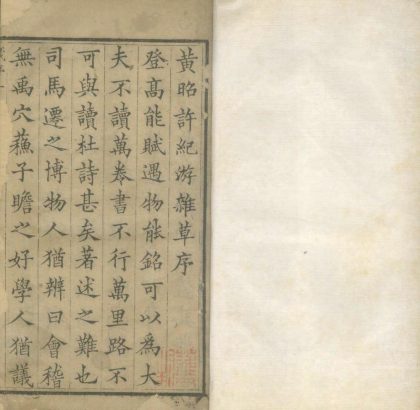 黃昭許紀游雜草序
登髙能賦遇物能銘可以為大
夫不讀萬卷書不行萬里路不
可與讀杜詩甚矣著述之難也
司馬遷之博物人猶辨曰會稽
無禹穴蘓子瞻之好學人猶議